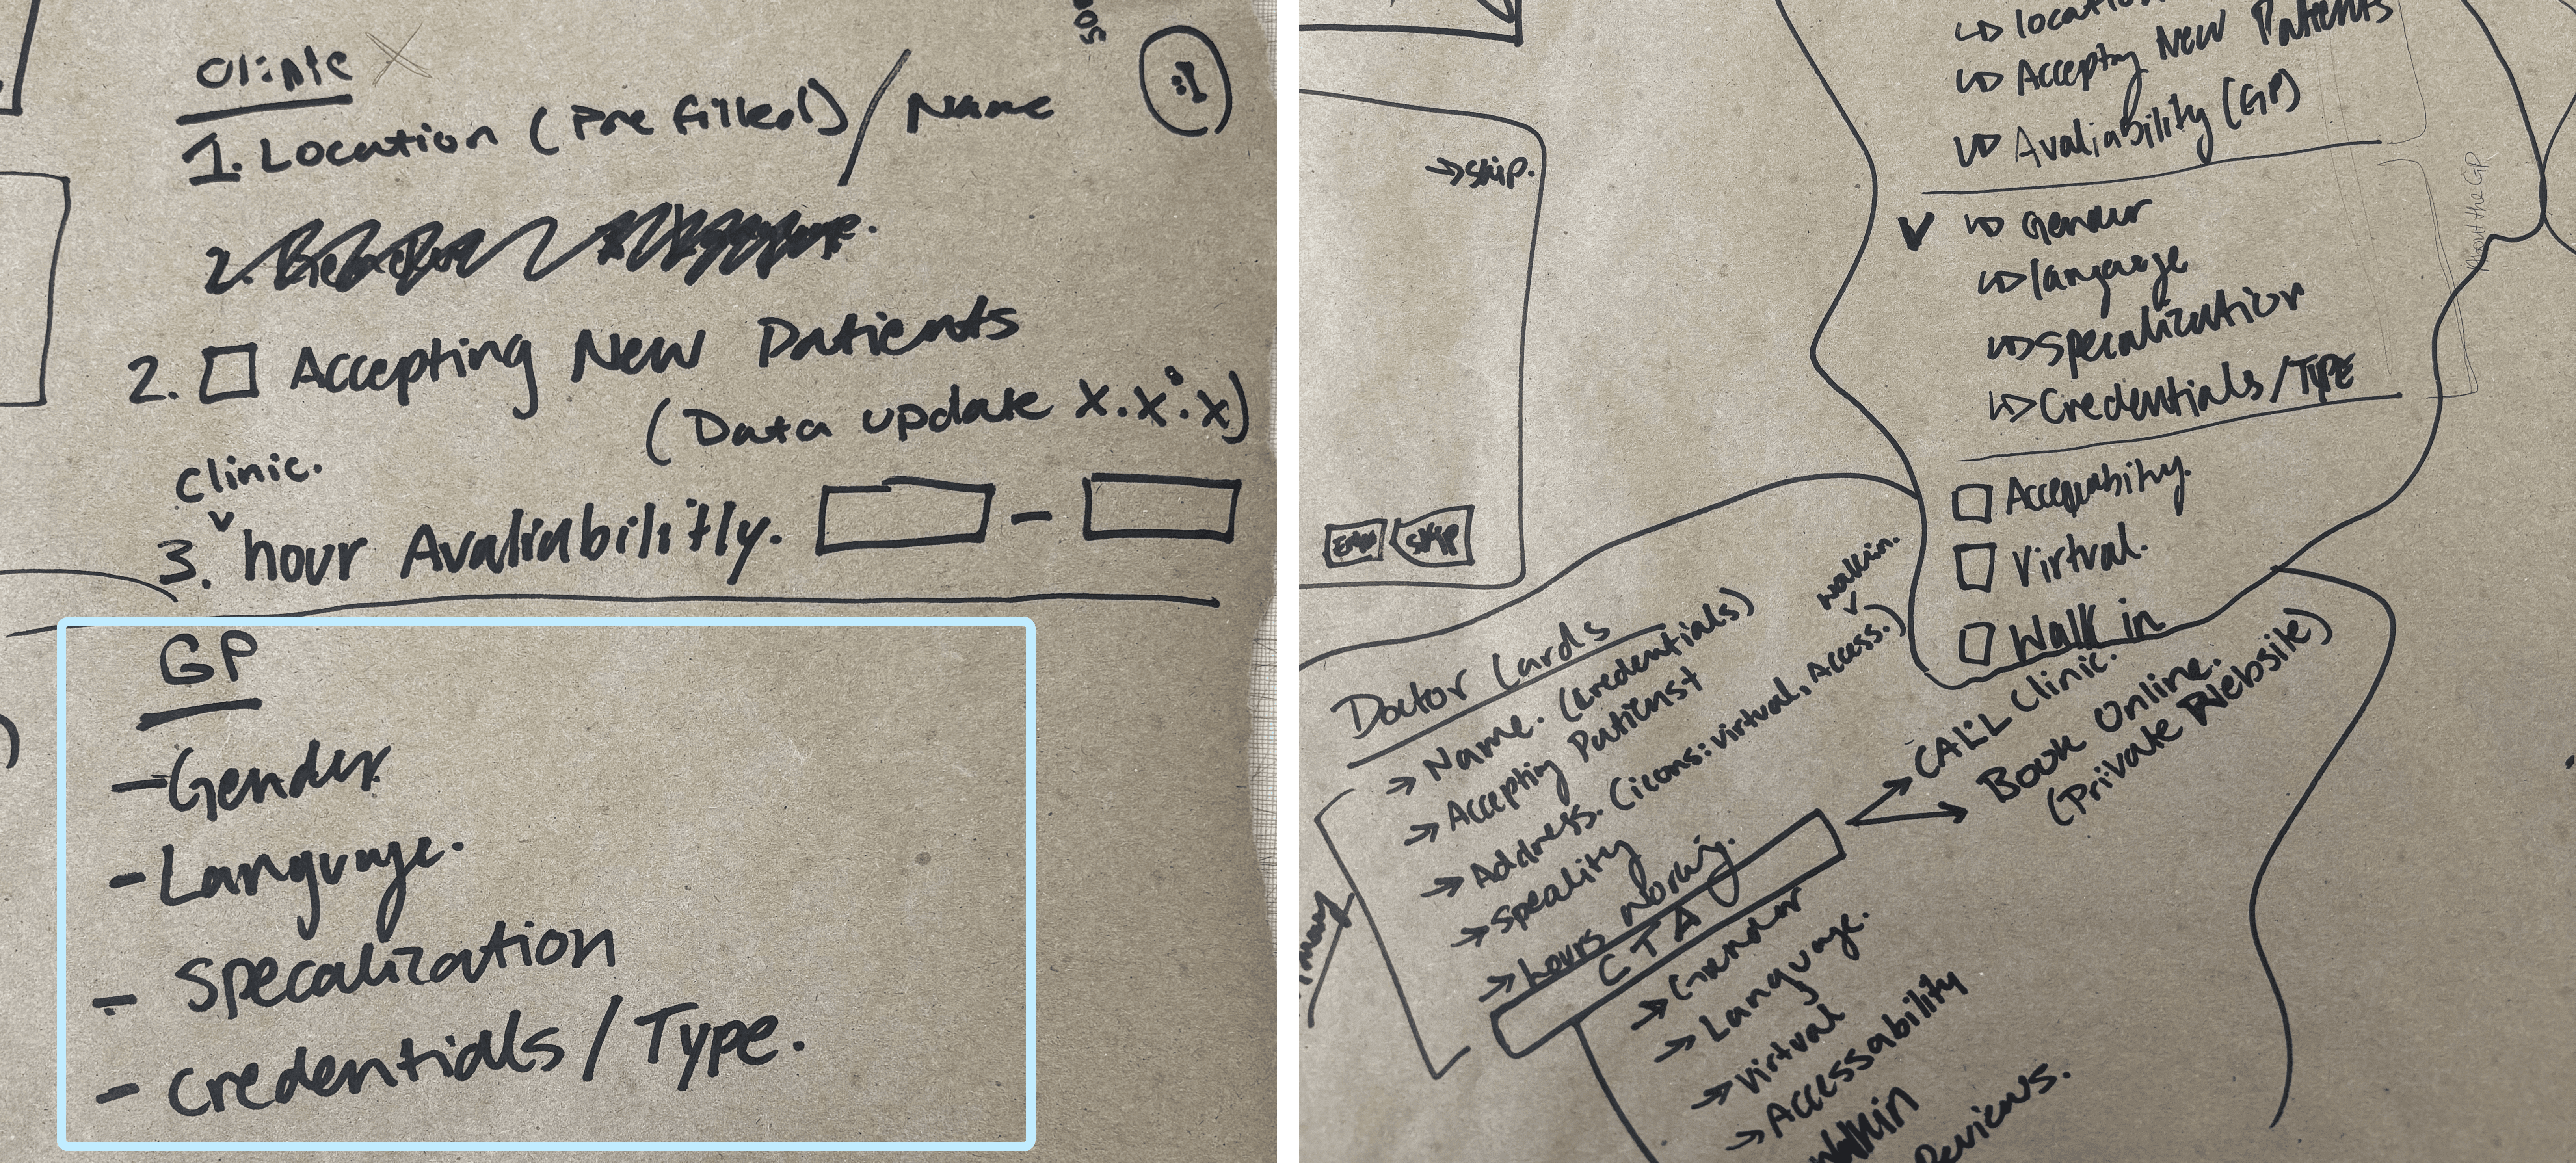 Clinic
1. Location (Pre filled) / Name
2.
2. Accepting New Patients
(Data update X.X.X)
Clinic.
3. hour Avaliabilitly. -
GP
- Gender
- Language.
- Specalization
- Credentials / Type.
location
Accepting New Patients
Avaliability (GP)
About the GP
Gender
language
Specalization
Credentials / TYPE
Virtual.
Walk in
→ Skip.
Skip
Doctor Cards
→ Name. (Credentials)
→ Accepting Patienst
walkin.
→ Address. (icons: virtual, Access.)
→ Speality
→ hours working.
CTA
→ CALL Clinic.
→ Book Online.
(Private Website)
→ Gender
→ Language.
→ Virtual
→ Accessability
walkin